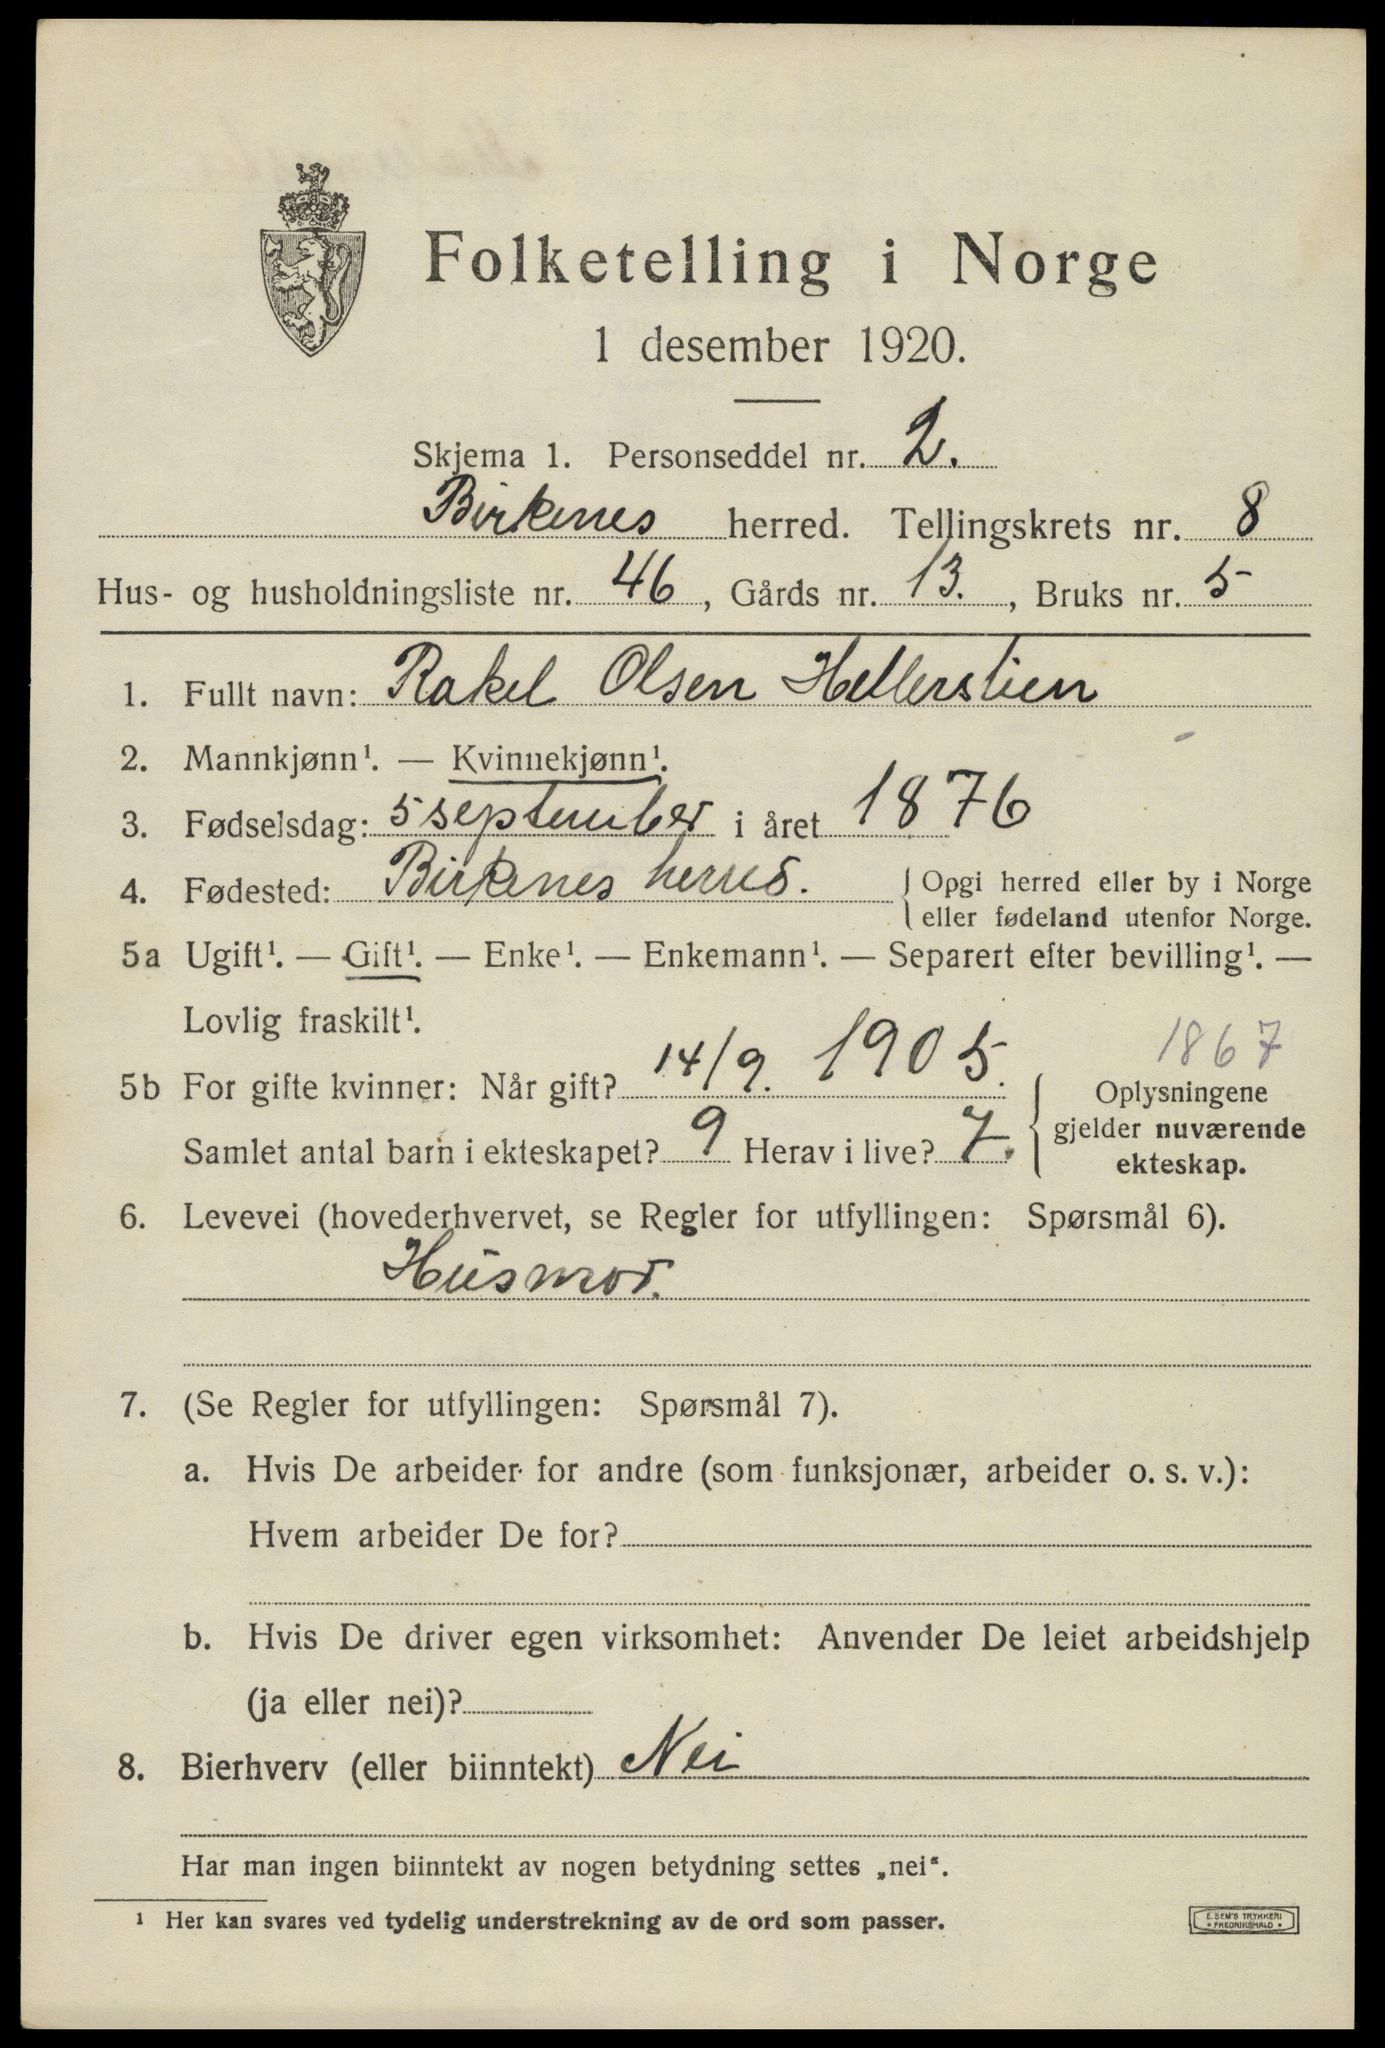 Folketelling i Norge
1 desember 1920.
Skjema 1. Personseddel nr. 2.
Birkenes herred. Tellingskrets nr. 8
Hus- og husholdningsliste nr. 46, Gårds nr. 13., Bruks nr. 5
1. Fullt navn: Rakel Olsen Hellerslien
2. Mannkjønn¹. — Kvinnekjønn¹.
3. Fødselsdag: 5 september i året 1876
4. Fødested: Birkenes herred. Opgi herred eller by i Norge
eller fødeland utenfor Norge.
5a Ugift¹. — Gift¹. — Enke¹. — Enkemann¹. — Separert efter bevilling¹. —
Lovlig fraskilt¹.
1867
5b For gifte kvinner: Når gift? 14/9. 1905. Oplysningene
gjelder nuværende
Samlet antal barn i ekteskapet? 9 Herav i live? 7. ekteskap.
6. Levevei (hovederhvervet, se Regler for utfyllingen: Spørsmål 6).
Husmor.
7. (Se Regler for utfyllingen: Spørsmål 7).
a. Hvis De arbeider for andre (som funksjonær, arbeider o. s. v.):
Hvem arbeider De for?
b. Hvis De driver egen virksomhet: Anvender De leiet arbeidshjelp
(ja eller nei)?
8. Bierhverv (eller biinntekt) Nei
Har man ingen biinntekt av nogen betydning settes „nei“.
¹ Her kan svares ved tydelig understrekning av de ord som passer.
E. SEM'S TRYKKERI
• FREDRIKSHALD •